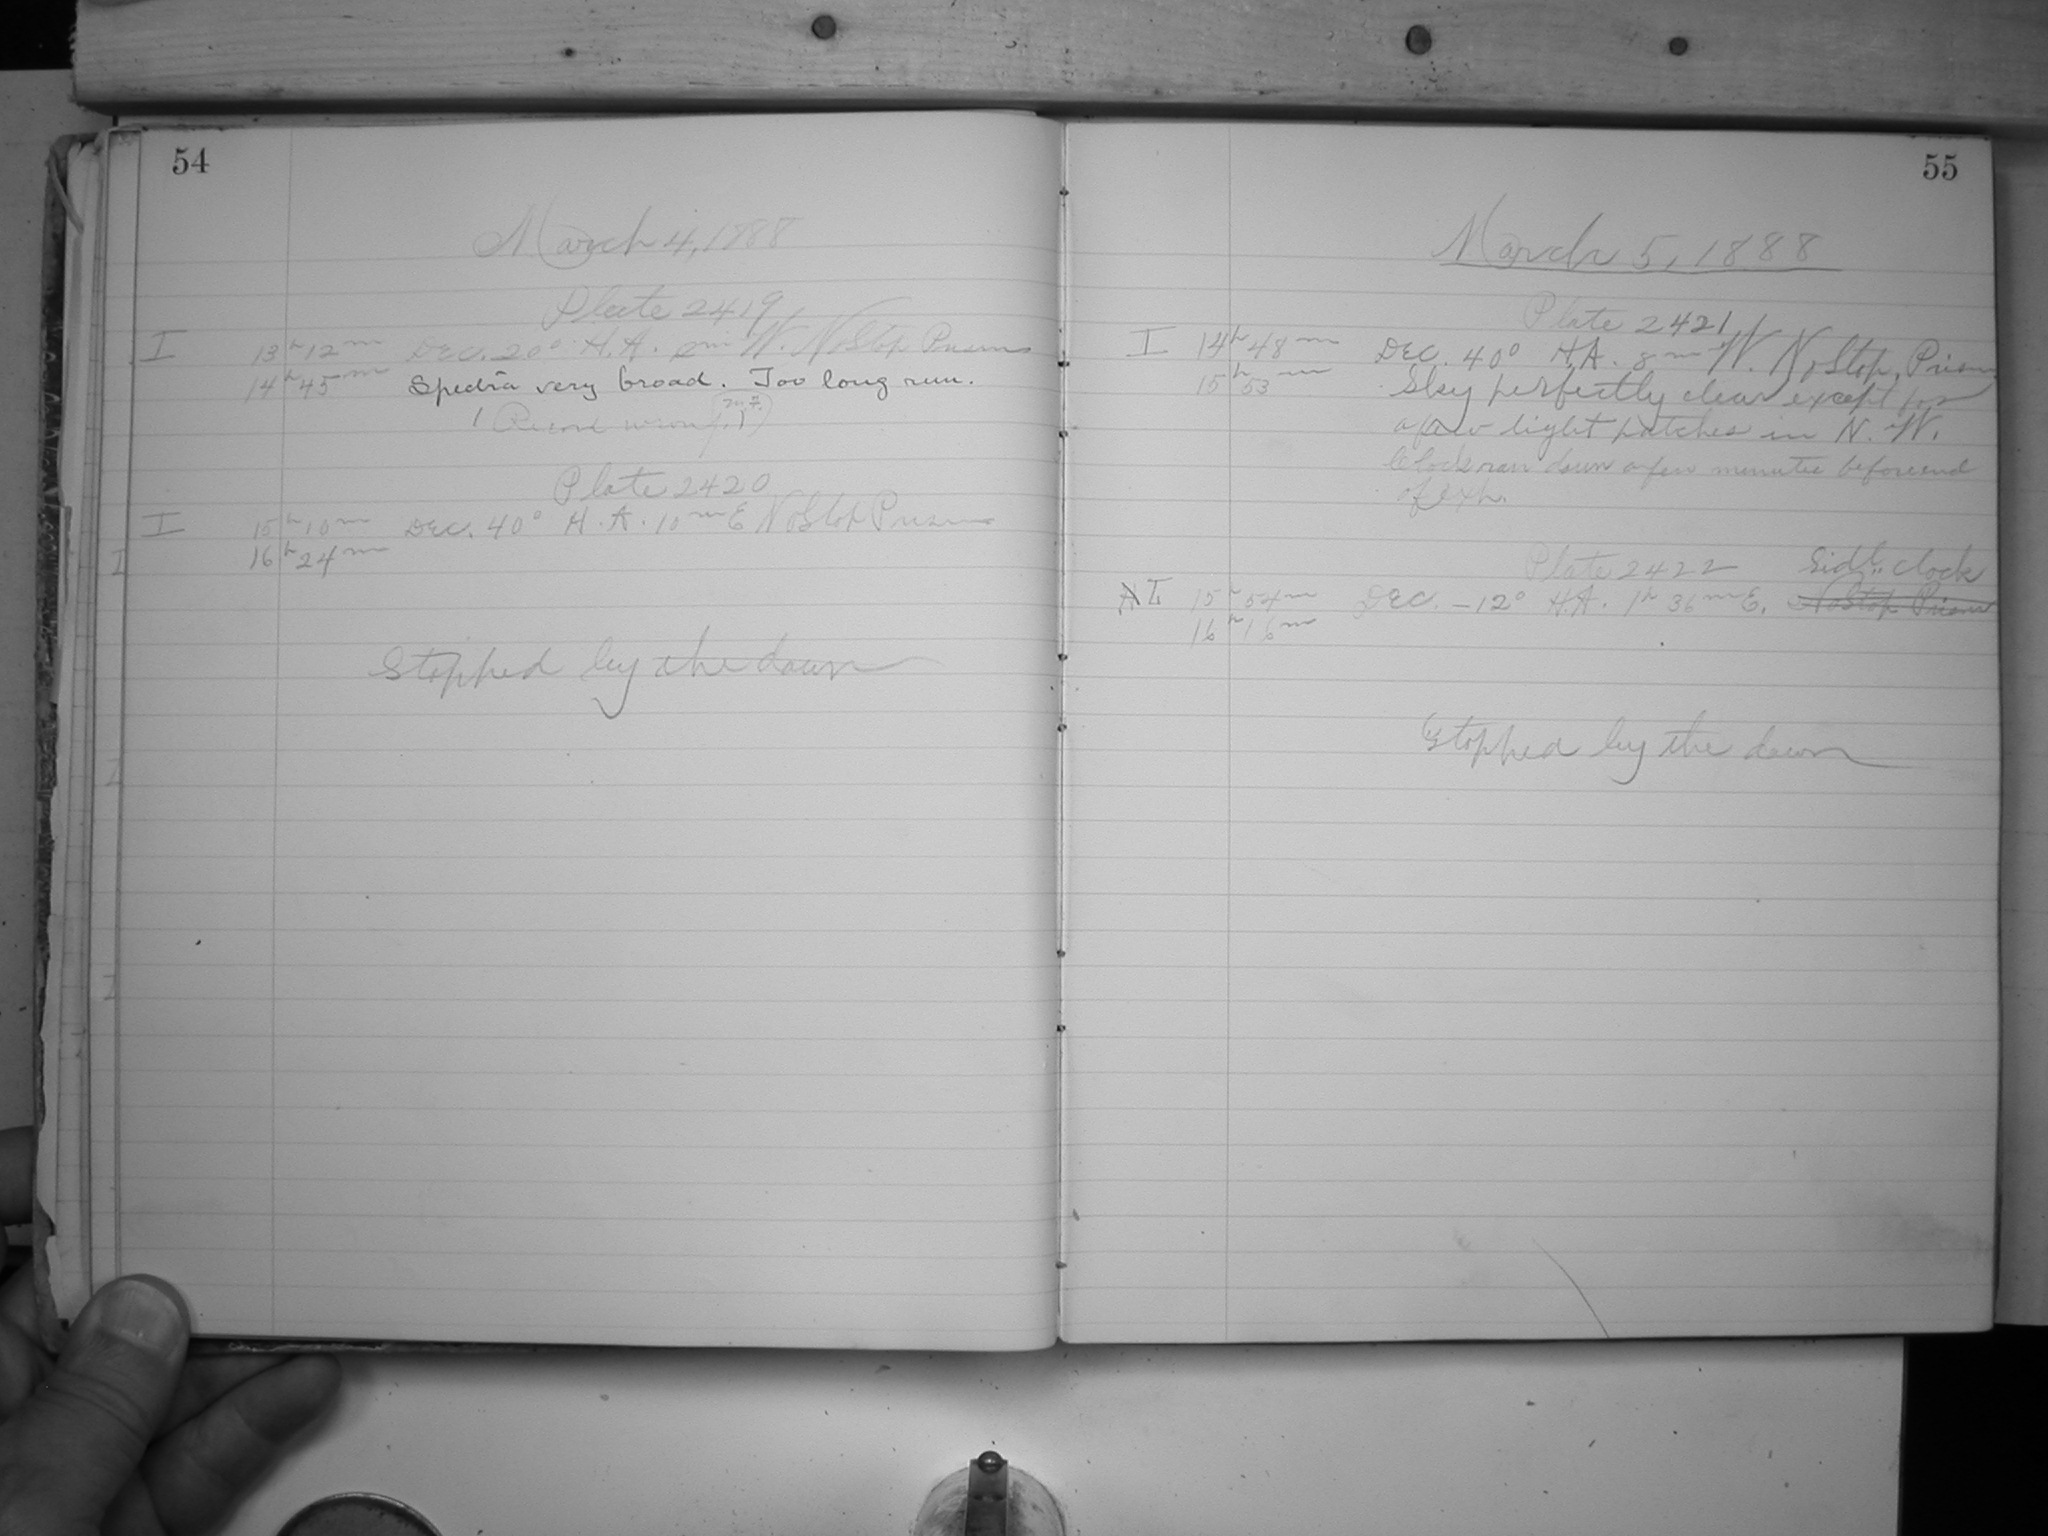 54
March 4, 1888
Plate 2419
I 13h 12m Dec. 20° H.A. 2m W. No Stop Prism
14h 45m Spectra very broad. Too long run.
(Record wrong.)
Plate 2420
I 15h 10m Dec. 40° H.A. 10m E No Stop Prism
I 16h 24m
Stopped by the dawn
I
I
55
March 5, 1888
Plate 2421
I 14h 48m Dec. 40° H.A. 8m W. No Stop, Prism
15h 53m Sky perfectly clear except for
a few light patches in N. W.
Clock ran down a few minutes before end
of exp.
Plate 2422 Sidl. clock
I 15h 54m Dec. -12° H.A. 1h 36m E. No Stop Prism
16h 16m
Stopped by the dawn